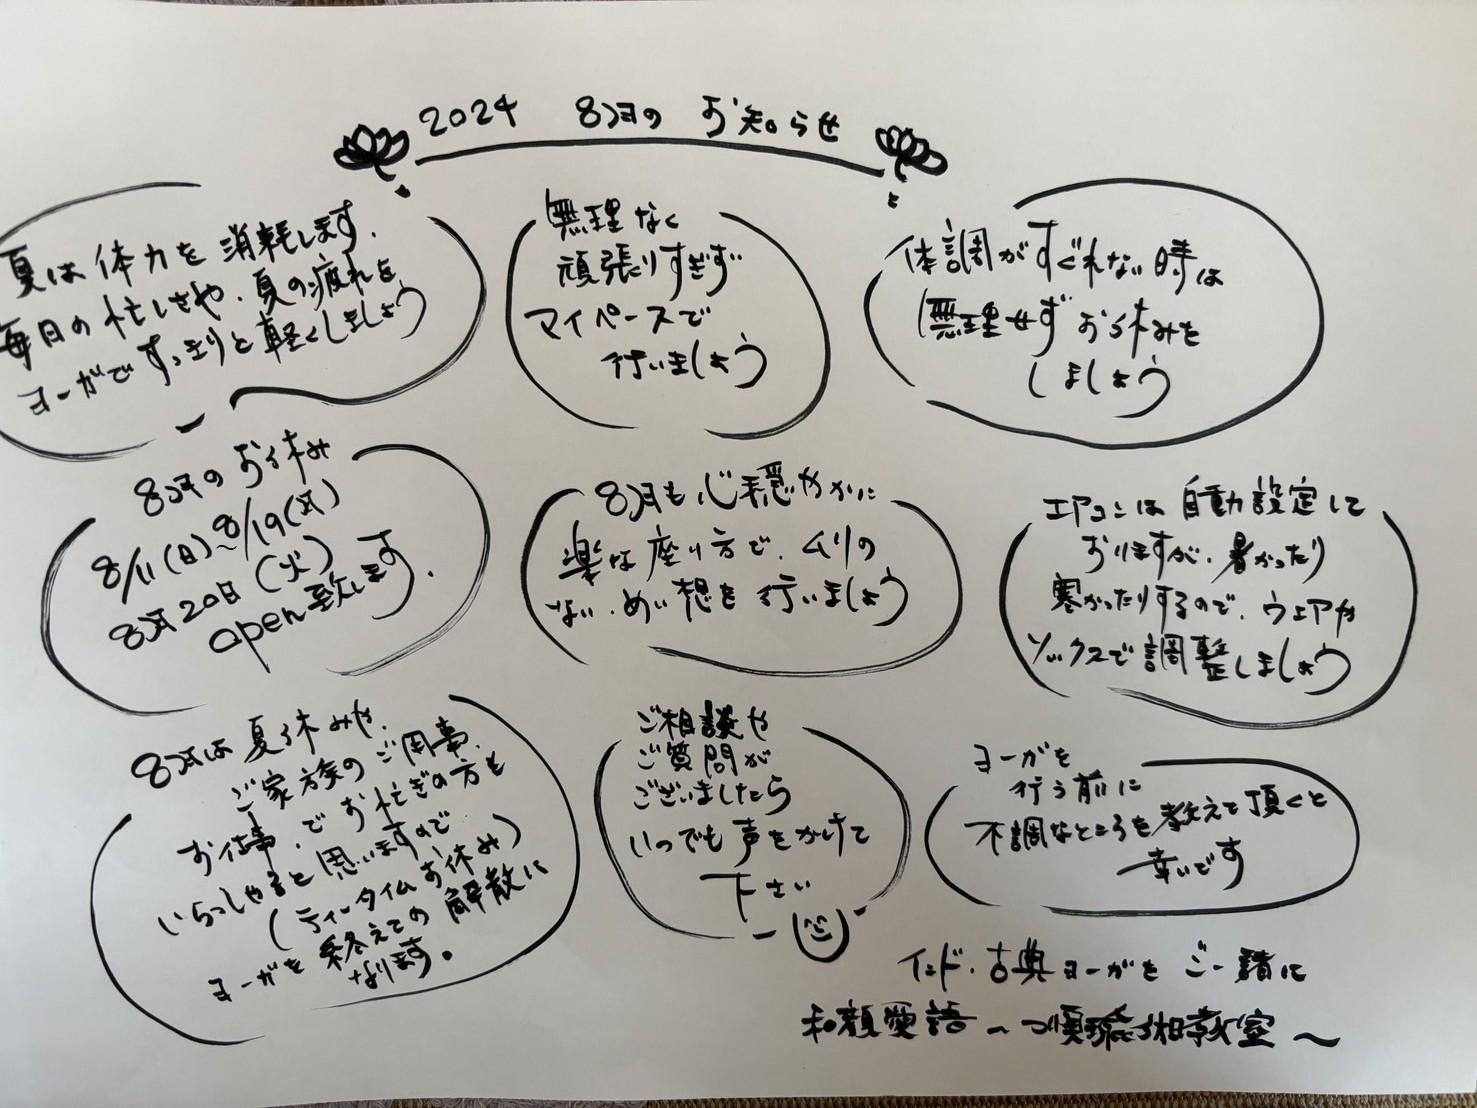 2024 8月のお知らせ
夏は体力を消耗します.
毎日の忙しさや、夏の疲れを
ヨーガですっきりと軽くしましょう
無理なく
頑張りすぎず
マイペースで
行いましょう
体調がすぐれない時は
無理せずお休みを
しましょう
8月のお休み
8/11(日)~8/19(月)
8月20日(火)
open致します.
8月も心穏やかに
楽な座り方で、ムリの
ない、めい想を行いましょう
エアコンは自動設定して
おりますが、暑かったり
寒かったりするので、ウェアや
ソックスで調整しましょう
8月は夏休みや、
ご家族のご用事、
お仕事、でお忙ぎの方も
いらっしゃると思いますので
(ティータイムお休み)
ヨーガを終えての解散に
なります。
ご相談や
ご質問が
ございましたら
いつでも声をかけて
下さい
ヨーガを
行う前に
不調なところを教えて頂くと
幸いです
インド・古典ヨーガをご一諸に
和顔愛語〜 教室〜